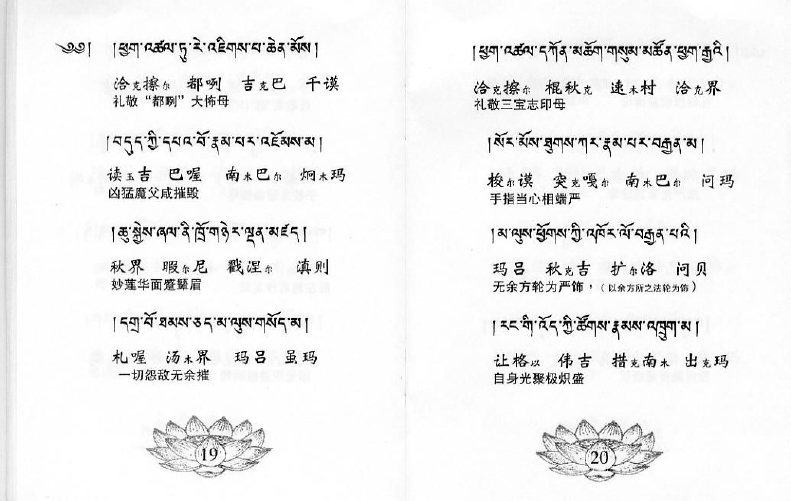 ༄༅། །ཕྱག་འཚལ་ཏུ་རེ་འཇིགས་པ་ཆེན་མོས།
洽克擦尔 都咧 吉克巴 千谟
礼敬“都咧”大怖母
།བདུད་ཀྱི་དཔའ་བོ་རྣམ་པར་འཇོམས་མ།
读玉吉 巴喔 南木巴尔 炯木玛
凶猛魔父咸摧毁
།ཆུ་སྐྱེས་ཞལ་ནི་ཁྲོ་གཉེར་ལྡན་མཛད།
秋界 暇尔尼 戳涅尔 滇则
妙莲华面蹙颦眉
།དགྲ་བོ་ཐམས་ཅད་མ་ལུས་གསོད་མ།
札喔 汤木界 玛吕 虽玛
一切怨敌无余摧
19
།ཕྱག་འཚལ་དཀོན་མཆོག་གསུམ་མཚོན་ཕྱག་རྒྱའི།
洽克擦尔 棍秋克 速木村 洽克界
礼敬三宝志印母
།སོར་མོས་ཐུགས་ཀར་རྣམ་པར་བརྒྱན་མ།
梭尔谟 突克嘎尔 南木巴尔 问玛
手指当心相端严
།མ་ལུས་ཕྱོགས་ཀྱི་འཁོར་ལོ་བརྒྱན་པའི།
玛吕 秋克吉 扩尔洛 问贝
无余方轮为严饰，（以余方所之法轮为饰）
།རང་གི་འོད་ཀྱི་ཚོགས་རྣམས་འཁྲུག་མ།
让格以 伟吉 措克南木 出克玛
自身光聚极炽盛
20